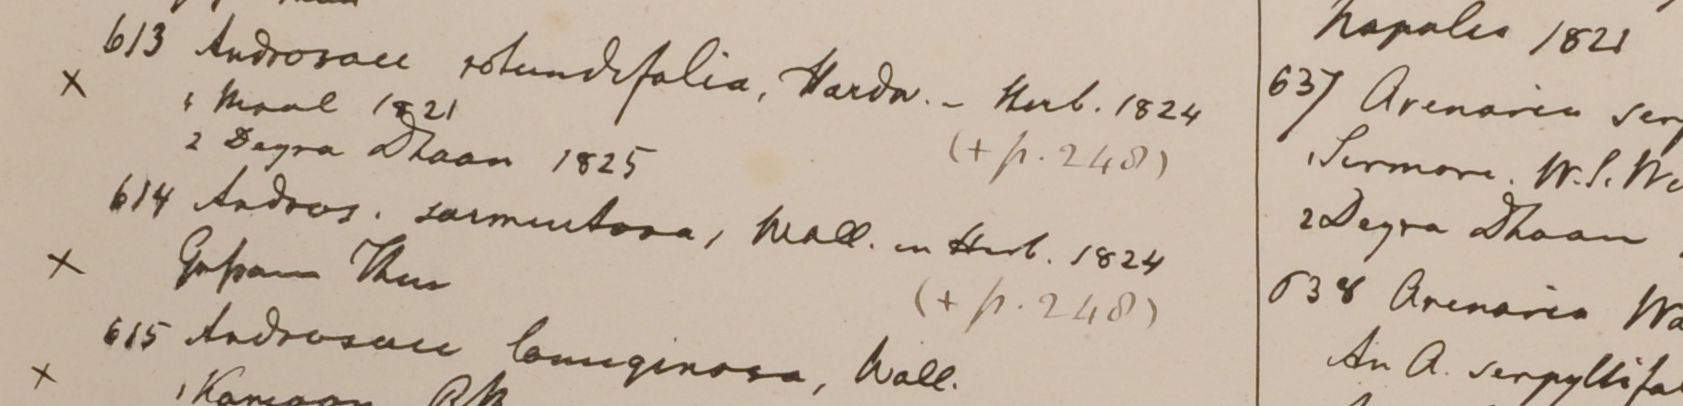 613 Androsace rotundifolia, Hardw. – Herb. 1824
1 1821
2 Deyra Dhoon 1825
(+ p. 248)
614 Andros. sarmentosa, Wall. in Herb. 1824
Gossain Than
(+ p. 248)
615 Androsace lanuginosa, Wall.
1 Kamaon RB
Napalia 1821
637 Arenaria serp
1 Sirmore. W.S. We
2 Deyra Dhoon
638 Arenaria Wa
An A. serpyllifol